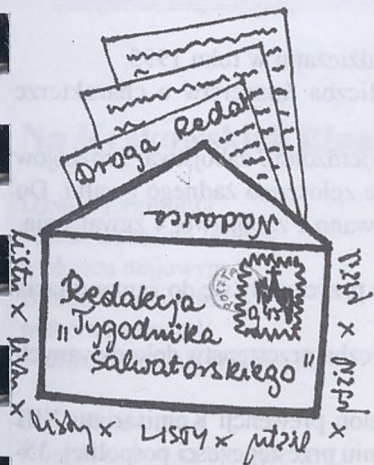 Droga Redak
Nadawca
Redakcja
"Tygodnika
Salwatorskiego"
listy x listy x listy x LISTY x listy x listy x listy